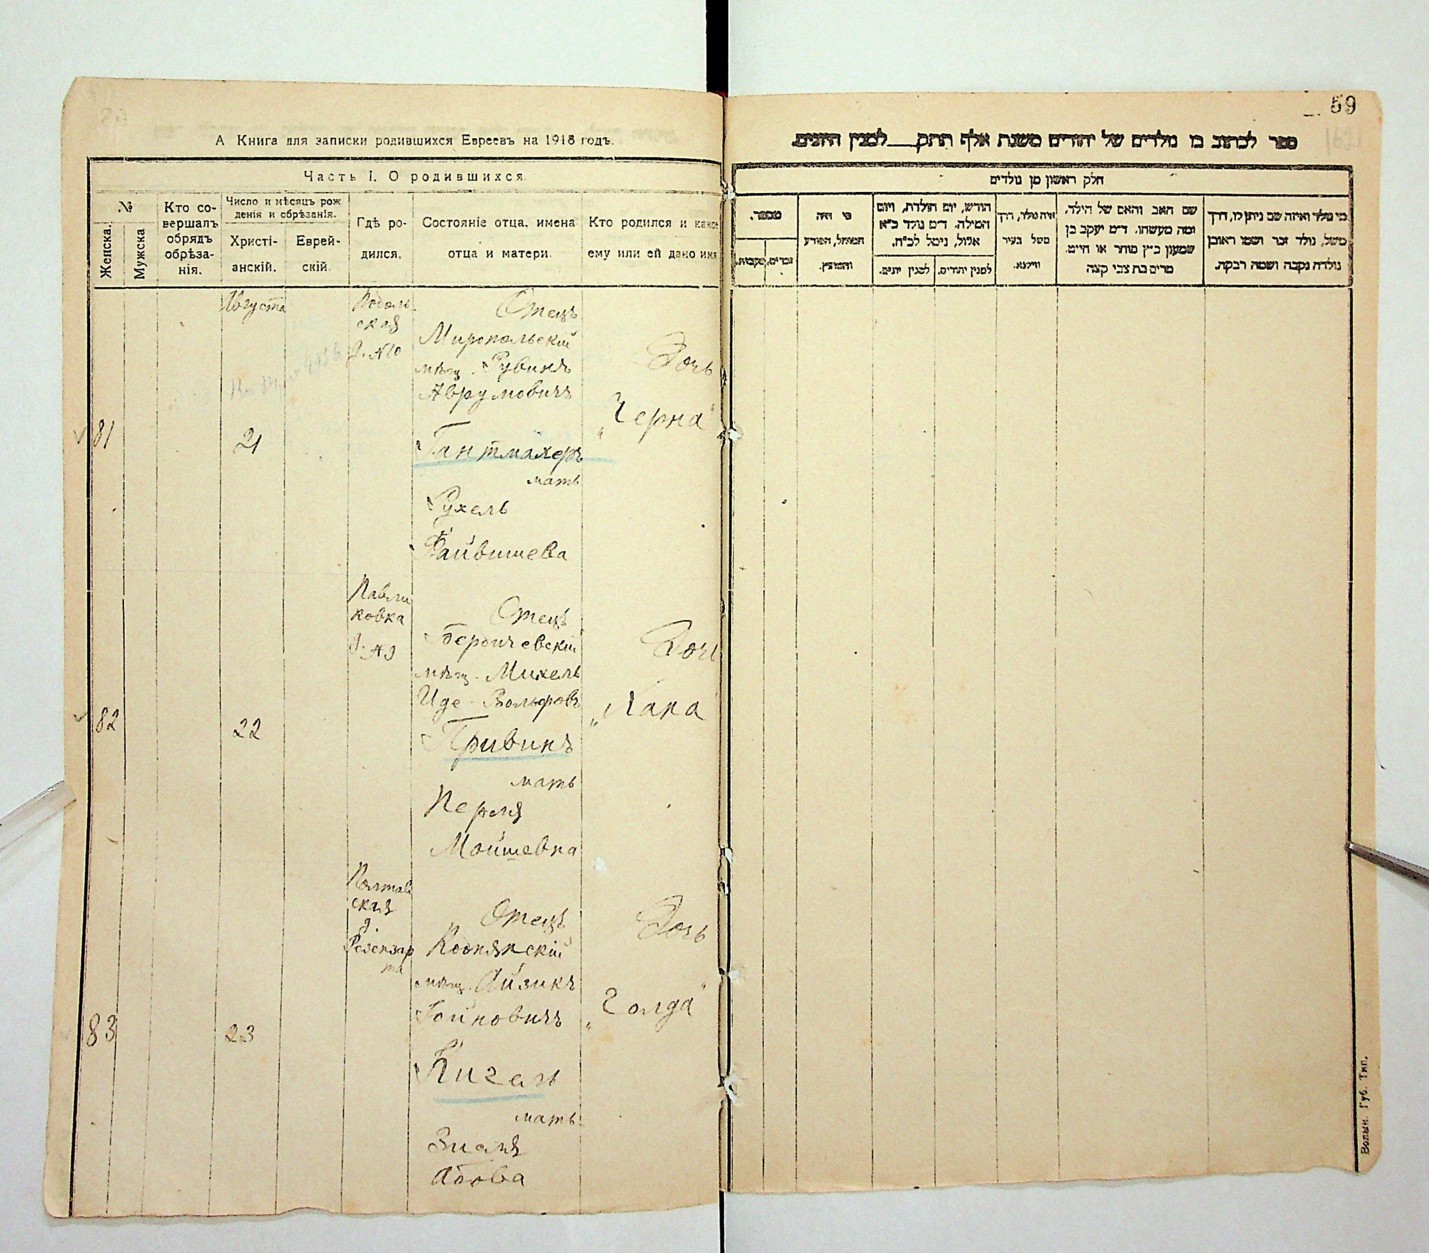 А Книга для записки родившихся Евреевъ на 1918 годъ.
Часть I. О родившихся.
№
Женска.
Мужска
Кто со-
вершалъ
обрядъ
обрѣза-
нія.
Число и мѣсяцъ рож
денія и обрѣзанія.
Христі-
анскій.
Еврей-
скій.
Гдѣ ро-
дился.
Состояніе отца, имена
отца и матери.
Кто родился и како
ему или ей дано имя
81
Августа
21
Подоль
ская
д. №10
Отецъ
Миропольскій
мѣщ. Рувинъ
Аврумовичъ
Гантмахеръ
мать
Рухель
Файвишева
Дочь
"Черна"
82
22
Павли
ковка
Отецъ
Бердичевскій
мѣщ. Михель
Иде-Вольфовъ
Привинъ
мать
Перля
Мойшевна
Дочь
"Хана"
83
23
Полтав
ская
д.
Отецъ
мѣщ. Айзикъ
Кигель
мать
Зисля
Абова
Дочь
"Голда"
59
ספר לכתוב בו נולדים של יהודים משנת אלף תתק___ למנין היונים.
חלק ראשון מן נולדים
מספר.
נקבות.
זכרים.
מי היה
המוהל, הפורע
והמוצץ.
חודש, יום הולדת, ויום
המילה. ד״מ נולד כ״א
אלול, נימל לכ״ח.
למנין יונים.
למנין יהודים.
איה נולד, דרך
משל בעיר
ווילנא.
שם האב והאם של הילד,
ומה מעשהו. ד״מ יעקב בן
שמעון כ״ץ סוחר או חייט.
מרים בת צבי קצה
מי נולד ואיזה שם ניתן לו, דרך
משל, נולד זכר ושמו ראובן
נולדה נקבה ושמה רבקה.
Волын. Губ. Тип.